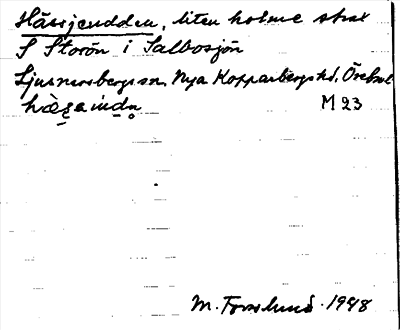 Hässjeudden, liten holme strax
S Storön i Salbosjön
Ljusnarsbergs sn, Nya Kopparbergs hd, Örebro l
M 23
M. Forslund 1948